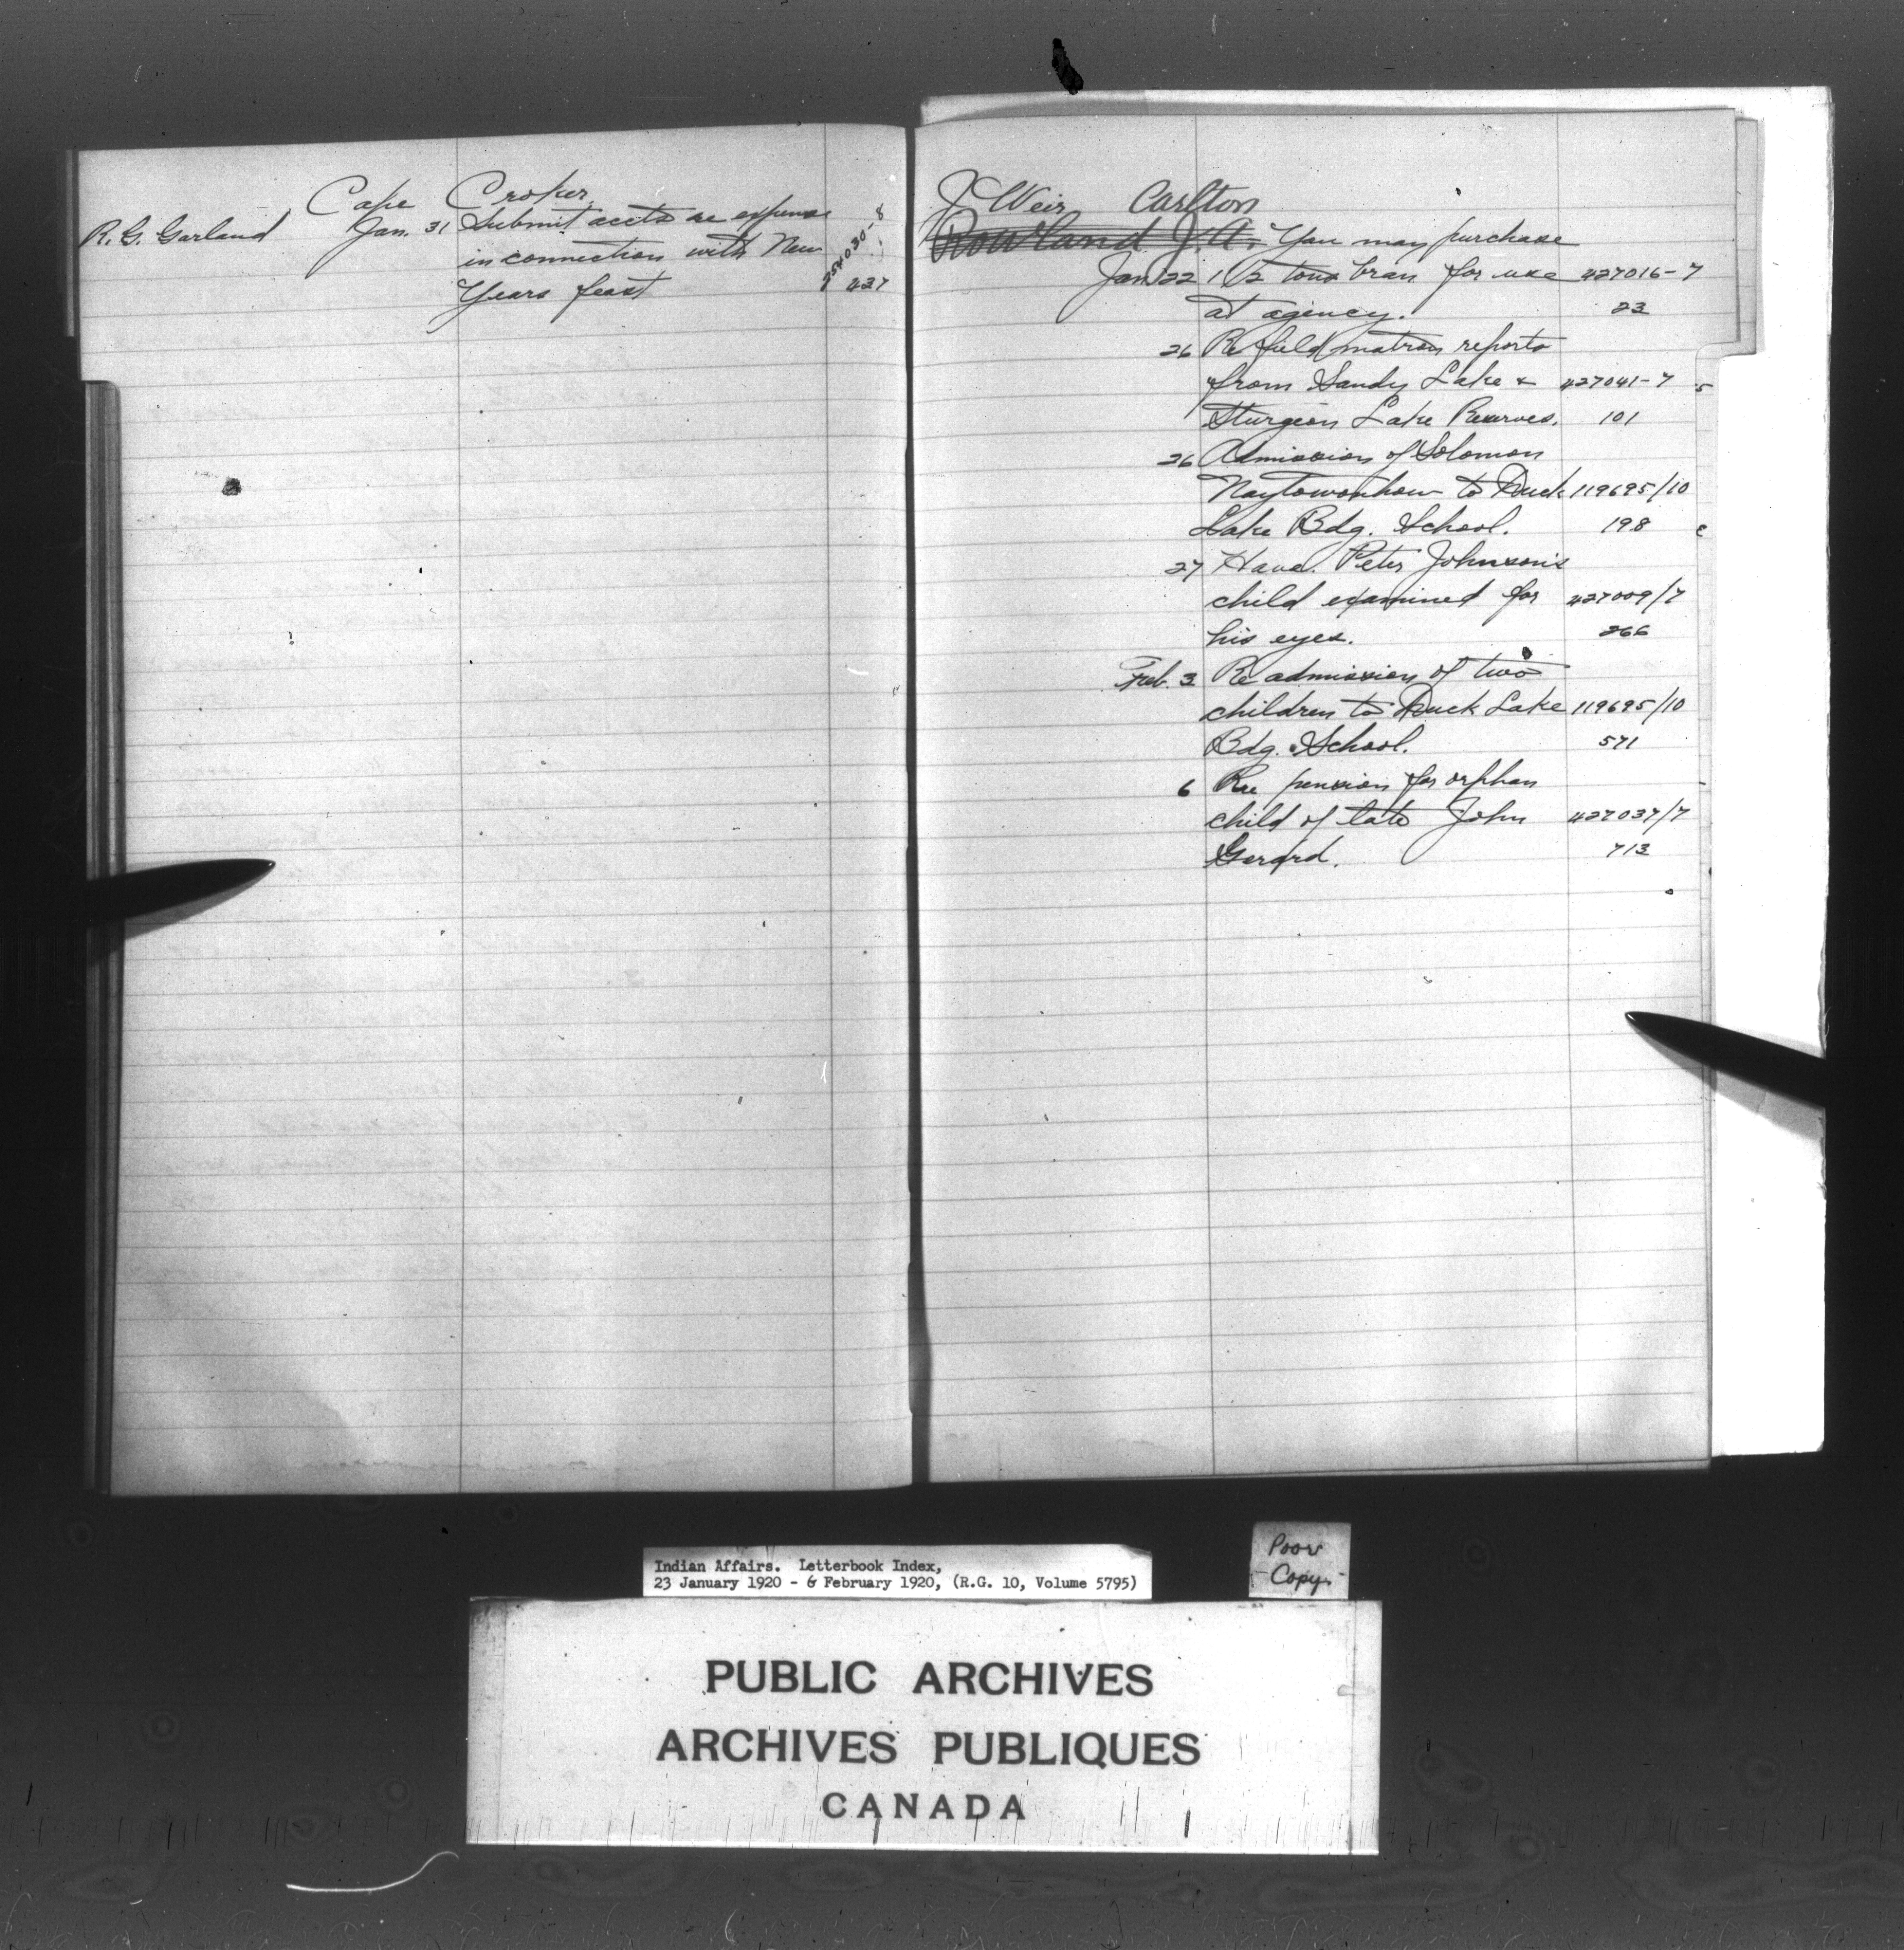 Cape Croker.
R. G. Garland Jan. 31 Submit accts re expense 254030-8
in connection with New
Years feast 437
J Weir Carlton
Rowland J. A. You may purchase
Jan 22 1 1/2 tons bran for use 427016-7
at agency. 23
26 Re field matron reports
from Sandy Lake & 427041-7
Sturgeon Lake Reserves. 101
26 Admission of Solomon
Naytowanhow to Duck 119695/10
Lake Bdg. School. 198
27 Have Peter Johnson's
child examined for 427009/7
his eyes. 266
Feb. 3 Re admission of two
children to Duck Lake 119695/10
Bdg. School. 571
6 Re pension for orphan
child of late John 427037/7
Gerard. 713
Indian Affairs. Letterbook Index,
23 January 1920 - 6 February 1920, (R.G. 10, Volume 5795)
Poor
Copy
PUBLIC ARCHIVES
ARCHIVES PUBLIQUES
CANADA